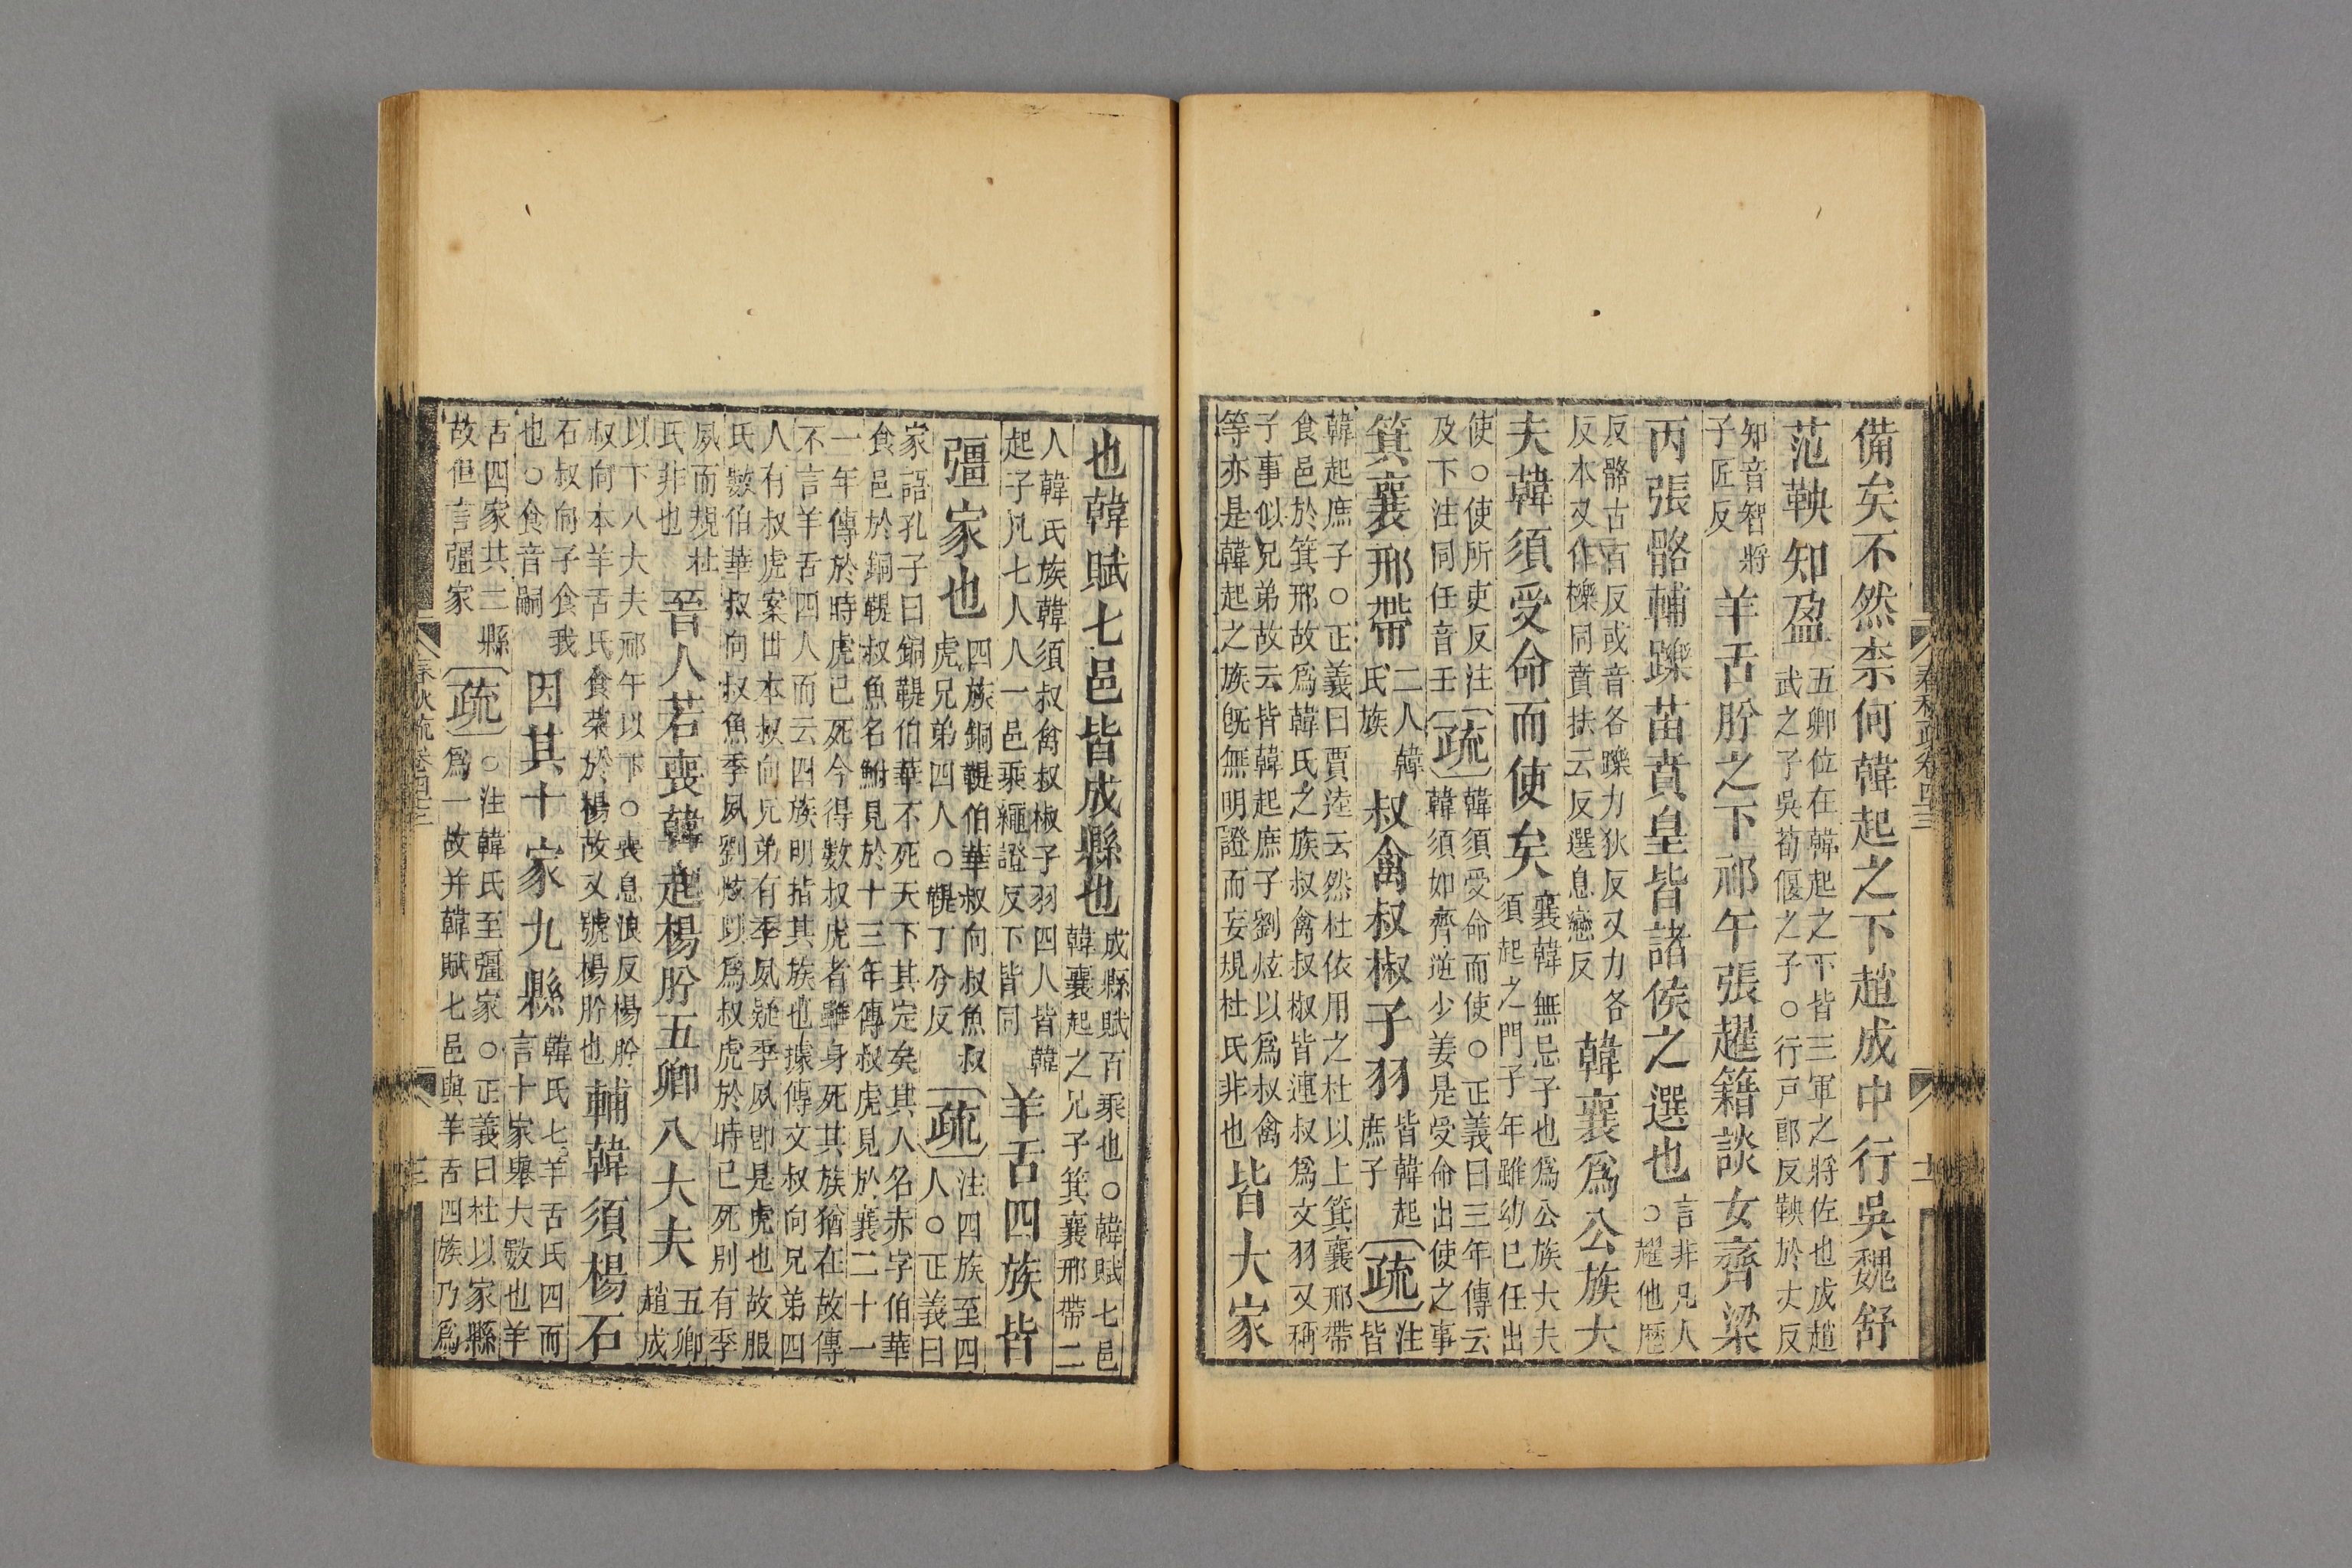 備矣不然柰何韓起之下趙成中行吳魏舒
范鞅知盈五卿位在韓起之下皆三軍之將佐也成趙武之子吳荀偃之子○行戸郎反鞅於丈反
知音智將子匠反羊舌肸之下祁午張趯籍談女齊梁
丙張骼輔躒苗賁皇皆諸侯之選也言非凡人○趯他歷
反骼古百反或音各躒力狄反又力各反本又作櫟同賁扶云反選息戀反韓襄爲公族大
夫韓須受命而使矣襄韓無忌子也爲公族大夫須起之門子年雖幼已任出
使○使所吏反注及下注同任音壬疏韓須受命而使○正義曰三年傳云韓須如齊逆少姜是受命出使之事
箕襄邢帶二人韓氏族叔禽叔椒子羽皆韓起庶子疏注皆
韓起庶子○正義曰賈逵云然杜依用之杜以上箕襄邢帶食邑於箕邢故爲韓氏之族叔禽叔椒皆連叔爲文羽又稱
子事似兄弟故云皆韓起庶子劉炫以爲叔禽等亦是韓起之族旣無明證而妄規杜氏非也皆大家
春秋疏卷四十三
十一
也韓賦七邑皆成縣也成縣賦百乘也○韓賦七邑韓襄起之兄子箕襄邢帶二
人韓氏族韓須叔禽叔椒子羽四人皆韓起子凡七人人一邑乘繩證反下皆同羊舌四族皆
彊家也四族銅鞮伯華叔向叔魚叔虎兄弟四人○鞮丁兮反疏注四族至四人○正義曰
家語孔子曰銅鞮伯華不死天下其定矣其人名赤字伯華食邑於銅鞮叔魚名鮒見於十三年傳叔虎見於襄二十一
一年傳於時虎已死今得數叔虎者雖身死其族猶在故傳不言羊舌四人而云四族明指其族也據傳文叔向兄弟四
人有叔虎案世本叔向兄弟有季夙疑季夙即是虎也故服氏數伯華叔向叔魚季夙劉炫以爲叔虎於時已死別有季
夙而規杜氏非也晉人若喪韓起楊肸五卿八大夫五卿趙成
以下八大夫祁午以下○喪息浪反楊肸叔向本羊舌氏食菜於楊故又號楊肸也輔韓須楊石
石叔向子食我也○食音嗣因其十家九縣韓氏七羊舌氏四而言十家舉大數也羊
舌四家共二縣故但言彊家疏○注韓氏至彊家○正義曰杜以家縣爲一故并韓賦七邑與羊舌四族乃爲
春秋疏卷四十三